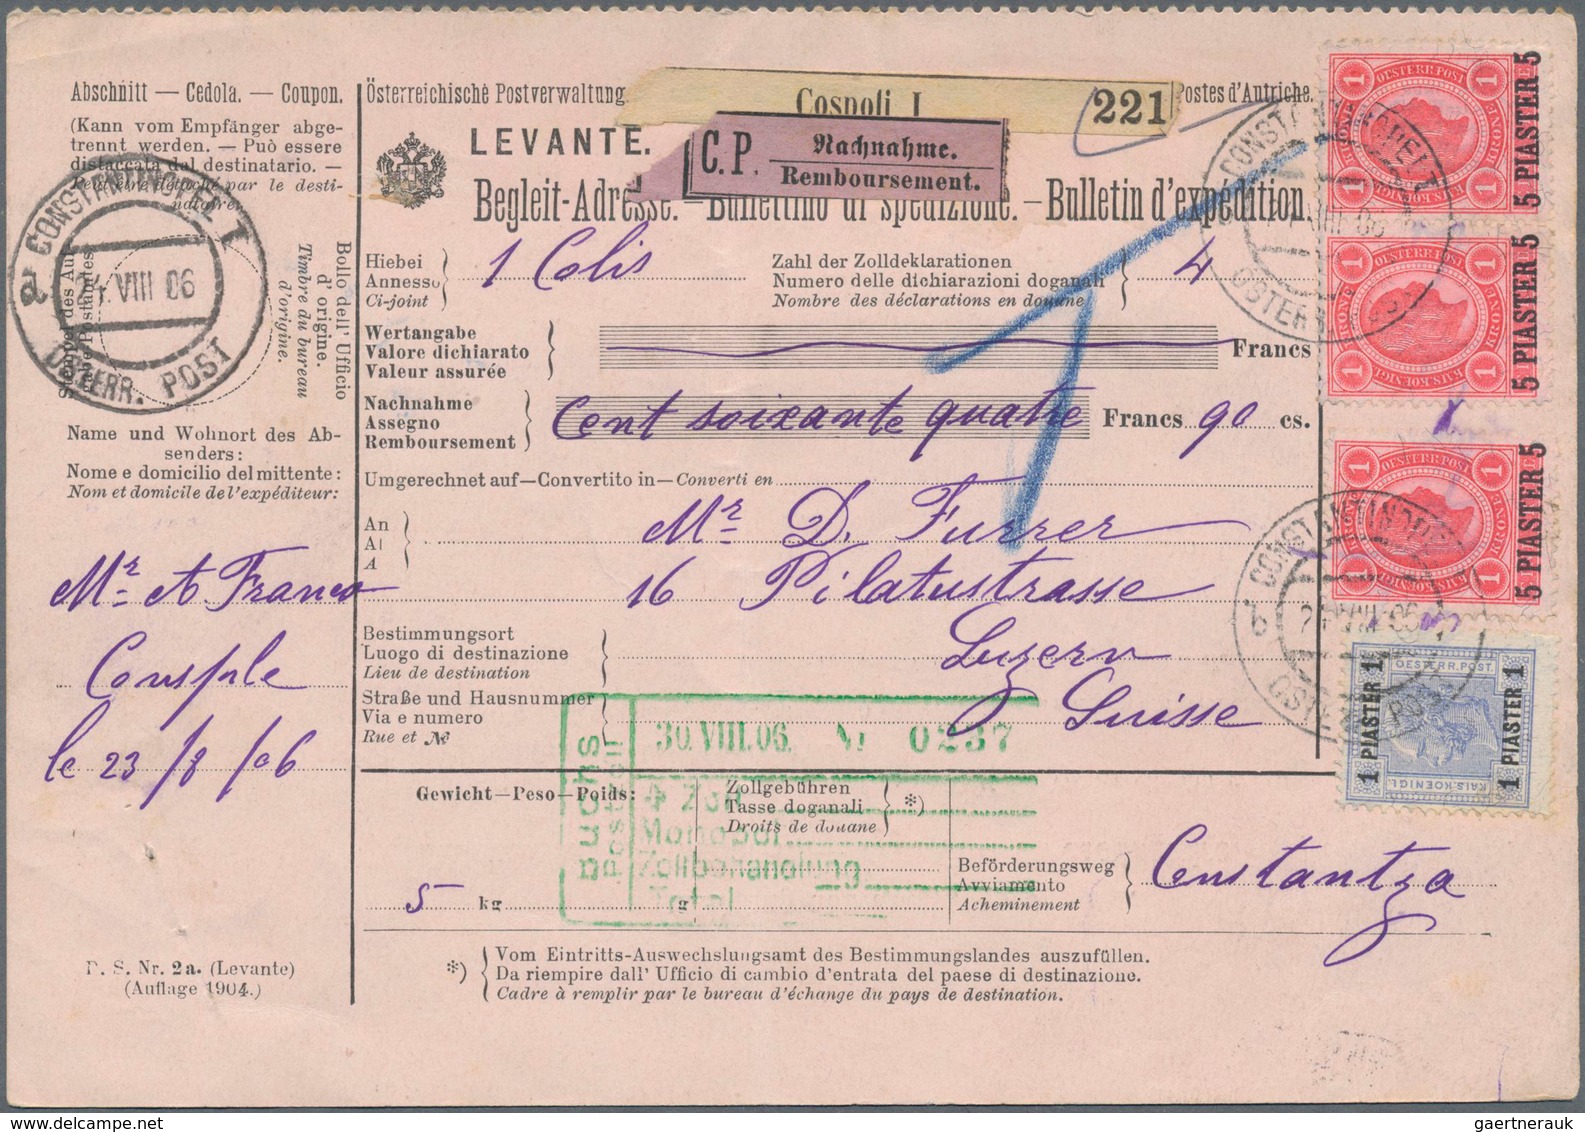 Abschnitt — Cedola. — Coupon.
(Kann vom Empfänger abge-
trennt werden. — Può essere
distaccata dal destinatario. —
Peut être détaché par le desti-
nataire.
CONSTANTINOPEL I
24 VIII 06
a
ÖSTERR. POST
Bollo dell' Ufficio
d' origine.
Timbre du bureau
d'origine.
Name und Wohnort des Ab-
senders:
Nome e domicilio del mittente:
Nom et domicile de l'expéditeur:
Mr A Franco
Consple
le 23/8/06
P. S. Nr. 2a. (Levante)
(Auflage 1904.)
Österreichische Postverwaltung
Cospoli I
221
Postes d'Autriche.
LEVANTE.
C.P.
Nachnahme.
Remboursement.
Begleit-Adresse. – Bullettino di spedizione. – Bulletin d'expédition.
Hiebei
Annesso
Ci-joint
1 Colis
Zahl der Zolldeklarationen
Numero delle dichiarazioni doganali
Nombre des déclarations en douane
4
Wertangabe
Valore dichiarato
Valeur assurée
Francs
Nachnahme
Assegno
Remboursement
Cent soixante quatre Francs 90 cs.
Umgerechnet auf—Convertito in—Converti en
An
Al
A
Mr D. Furrer
16 Pilatusstrasse
Bestimmungsort
Luogo di destinazione
Lieu de destination
Luzern
Straße und Hausnummer
Via e numero
Rue et №
Suisse
Buchs
30.VIII.06. Nr 0237
Zoll
Monopol
Zollbehandlung
Total
Gewicht—Peso—Poids:
5 kg g
Zollgebühren
Tasse doganali
Droits de douane
*)
Beförderungsweg
Avviamento
Acheminement
Constantza
*)
Vom Eintritts-Auswechslungsamt des Bestimmungslandes auszufüllen.
Da riempire dall' Ufficio di cambio d'entrata del paese di destinazione.
Cadre à remplir par le bureau d'échange du pays de destination.
1 OESTERR.POST 1
5 PIASTER 5
1 1
5 PIASTER 5
1 OESTERR.POST 1
5 PIASTER 5
OESTERR.POST.
1 PIASTER 1
1 PIASTER 1
KAIS.KOENIGL.
CONSTANTINOPEL I
VIII 06
ÖSTERR. POST
CONSTANTINOPEL
b
24 VIII 06
ÖSTERR. POST
gaertnerauk @ delcampe.net